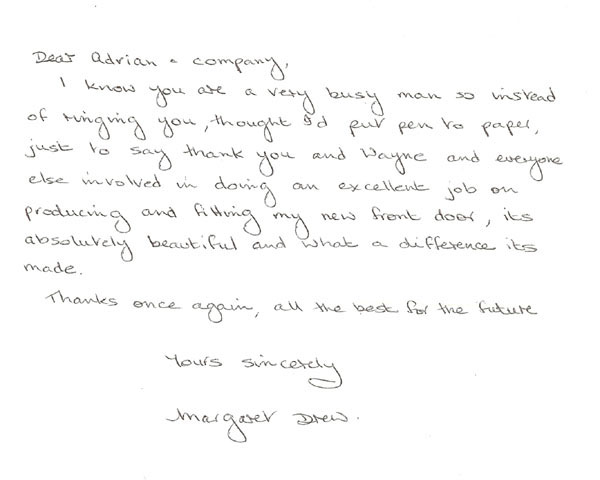 Dear Adrian & company,
I know you are a very busy man so instead
of ringing you, thought I'd put pen to paper,
just to say thank you and Wayne and everyone
else involved in doing an excellent job on
producing and fitting my new front door, its
absolutely beautiful and what a difference its
made.
Thanks once again, all the best for the future
Yours sincerely
Margaret Drew.